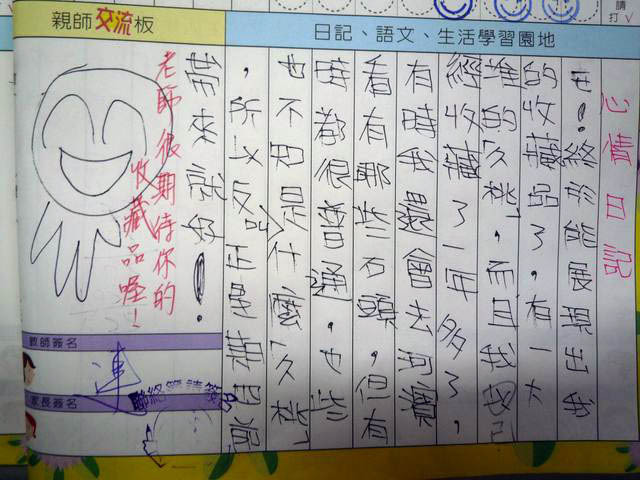 請
打∨
日記、語文、生活學習園地
心情日記
終於能展現出我
的收藏品了,有一大
堆的「久桃」,而且我已
經收藏了一年多了,
有時我還會去河
看有哪些石頭,但有
時都很普通,也些
也不知是什麼「久桃」
,所以反正
帶來就好!。
親師交流板
老師很期待你的
收藏品喔!
教師簽名
連
家長簽名
聯絡簿請簽